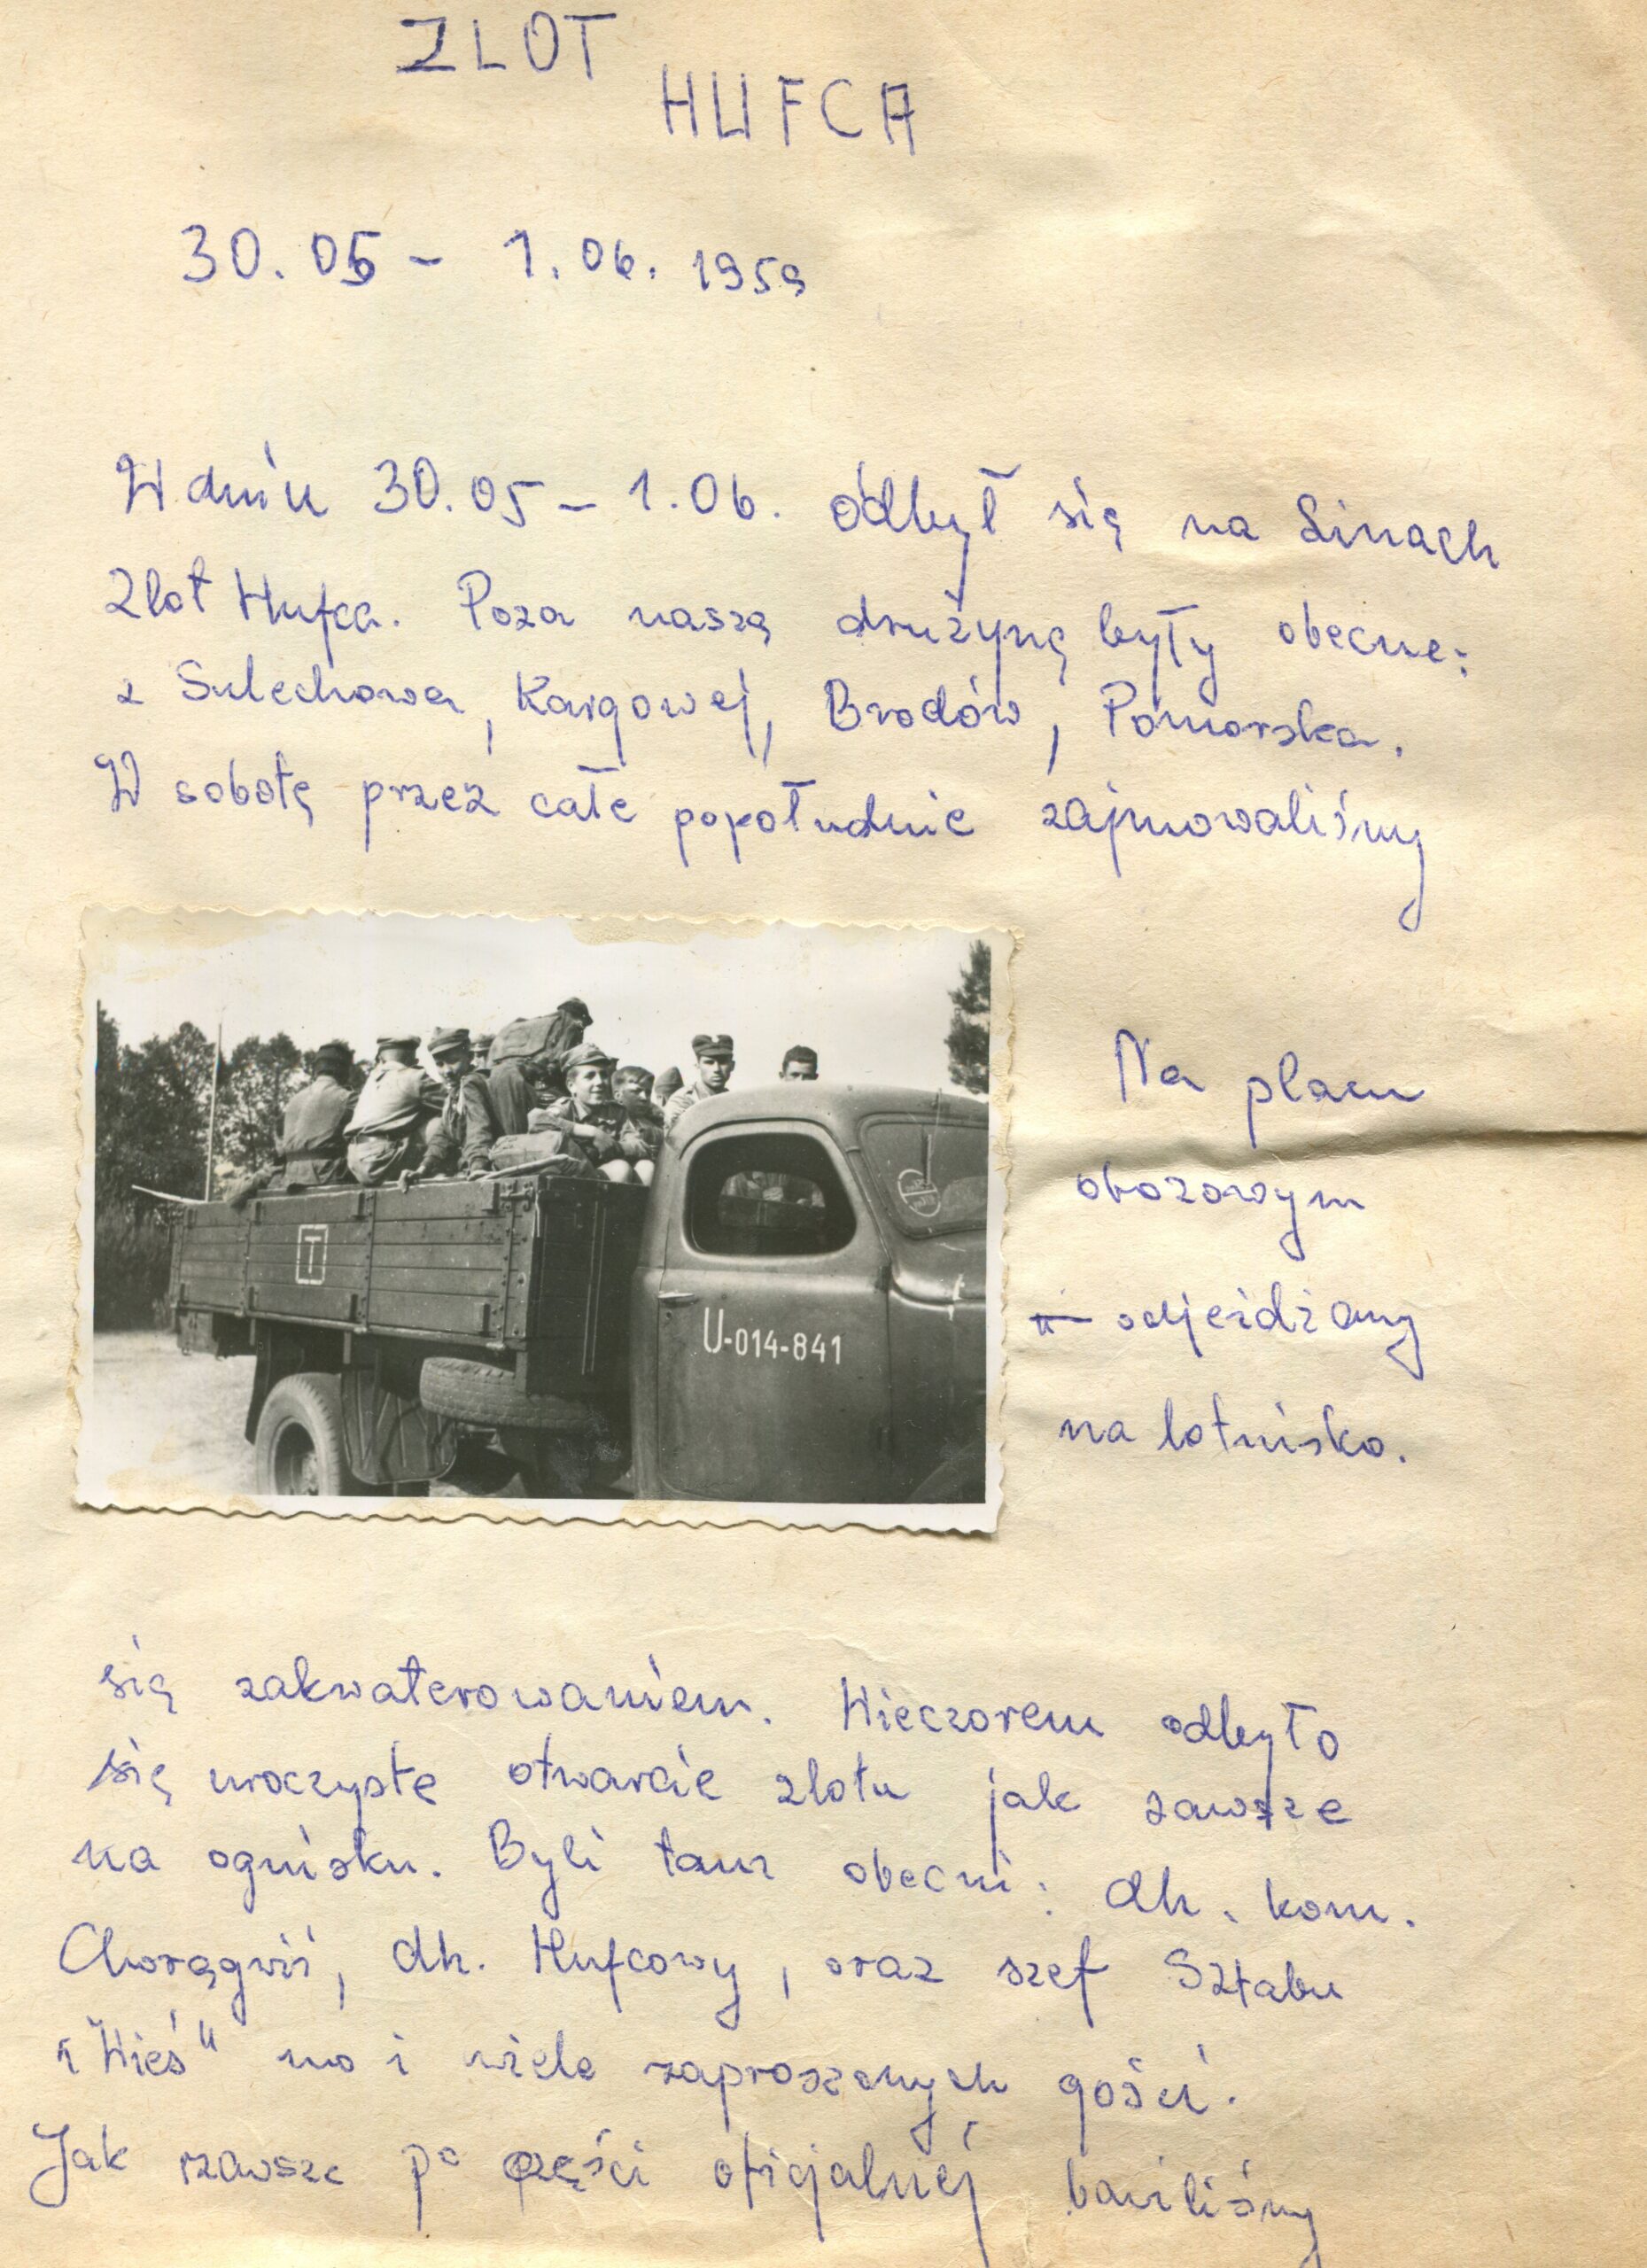 ZLOT
HUFCA
30.05 - 1.06. 1959
W dniu 30.05 - 1.06. odbył się na Linach
Zlot Hufca. Poza naszą drużyną były obecne:
z Sulechowa, Kargowej, Brodów, Pomorska.
W sobotę przez całe popołudnie zajmowaliśmy
T
U-014-841
Na placu
obozowym
odjeżdżamy
na lotnisko.
się zakwaterowaniem. Wieczorem odbyło
się uroczyste otwarcie zlotu jak zawsze
na ognisku. Byli tam obecni: dh. kom.
Chorągwi, dh. Hufcowy, oraz szef Sztabu
"Wieś" no i wiele zaproszonych gości.
Jak zawsze po części oficjalnej bawiliśmy